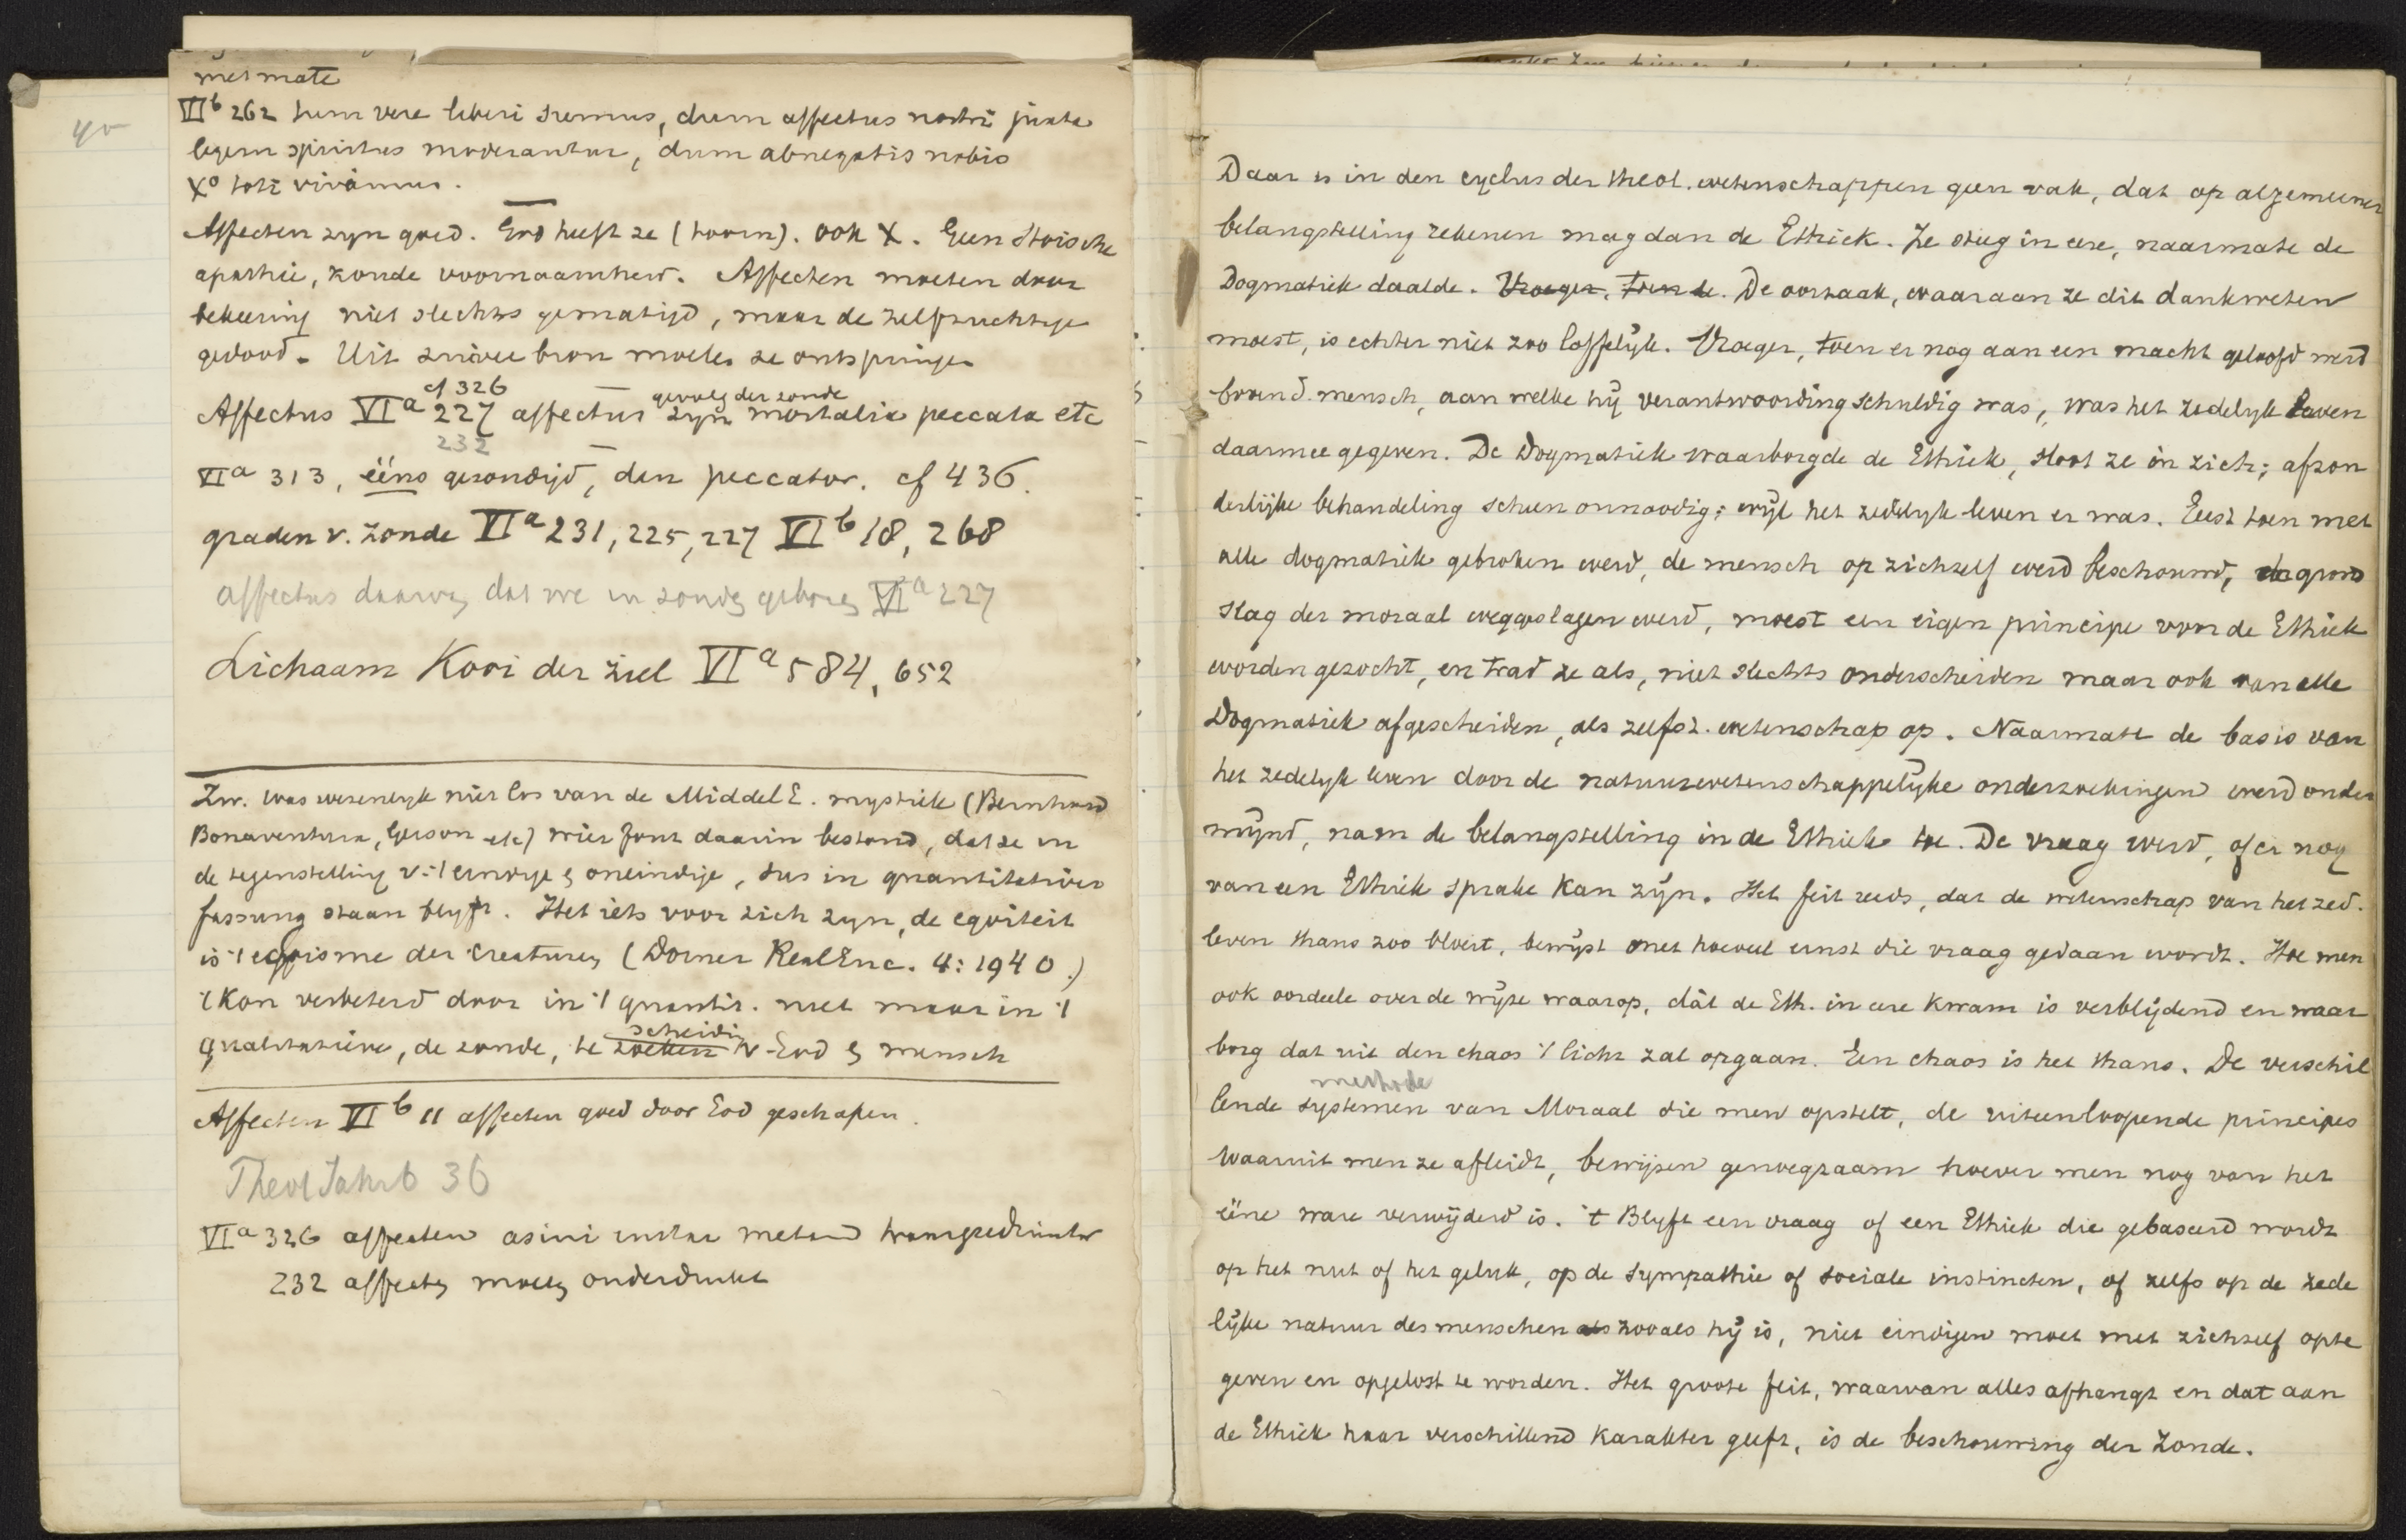 40
met mate
VI b 262 tum vere liberi sumus, dum affectus nostri juxta
legem spiritus moderantur, dum abnegatis nobis
Xo toti vivamus.
Affecten zyn goed. God heeft ze (toorn). ook X. Geen Stoische
apathie, koude voornaamheid. Affecten moeten door
bekeering niet slechts gematigd, maar de zelfzuchtige
gedood. Uit zuivere bron moeten ze ontspringen
cf 326 gevolg der zonde
Affectus VI a 227 affectus zyn mortalia peccata etc
232
VI a 313, ééns gezondigd, dan peccator. cf 436.
graden v. zonde VI a 231, 225, 227 VI b 18, 268
affectus daarvan dat we in zonden geboren VI a 227
Lichaam Kooi der ziel VI a 584, 652
Zw. was wezenlyk niet los van de Middel E. mystiek (Bernhard
Bonaventura, Gerson etc) wier fout daarin bestond, dat ze in
de tegenstelling v. 't eindige & oneindige, dus in quantitatieve
fassung staan blyft. Het iets voor zich zyn, de egoiteit
is 't egoisme der creaturen (Dorner RealEnc. 4: 1940.)
't Kon verbeterd door in 't quantit. niet maar in 't
scheiding
qualitatieve, de zonde, te zoeken v. God & mensch
Affecten VI b 11 affecten goed door God geschapen.
Theol Jahrb 36
VI a 326 affecten asini instar metam transgrediuntur
232 affecten moeten onderdrukt
Daar is in den cyclus der theol. wetenschappen geen vak, dat op algemeener
belangstelling rekenen mag dan de Ethiek. Ze steeg in eere, naarmate de
Dogmatiek daalde. Vroeger, toen de. De oorzaak, waaraan ze dit dankweten
moest, is echter niet zoo loffelyk. Vroeger, toen er nog aan een macht geloofd werd
boven d. mensch, aan welke hij verantwoording schuldig was, was het zedelyk leven
daarmee gegeven. De Dogmatiek waarborgde de Ethiek, sloot ze in zich; afzon
derlijke behandeling scheen onnoodig; wijl het zedelyk leven er was. Eerst toen met
alle dogmatiek gebroken werd, de mensch op zichzelf werd beschouwd, de grond
slag der moraal weggeslagen werd, moest een eigen principe voor de Ethiek
worden gezocht, en trad ze als, niet slechts onderscheiden maar ook van alle
Dogmatiek afgescheiden, als zelfst. wetenschap op. Naarmate de basis van
het zedelyk leven door de natuurwetenschappelyke onderzoekingen werd onder
mijnd, nam de belangstelling in de Ethiek toe. De vraag werd, of er nog
van een Ethiek sprake kan zijn. Het feit reeds, dat de wetenschap van het zed.
leven thans zoo bloeit, bewijst met hoeveel ernst die vraag gedaan wordt. Hoe men
ook oordeele over de wijze waarop, dát de Eth. in eere kwam is verblijdend en waar
borg dat uit den chaos 't licht zal opgaan. Een chaos is het thans. De verschil
methode
lende systemen van Moraal die men opstelt, de uiteenloopende principes
waaruit men ze afleidt, bewijzen genoegzaam hoever men nog van het
ééne ware verwijderd is. 't Blyft een vraag of een Ethiek die gebaseerd wordt
op het nut of het geluk, op de sympathie of sociale instincten, of zelfs op de zede
lijke natuur des menschen als zooals hij is, niet eindigen moet met zichzelf op te
geven en opgelost te worden. Het groote feit, waarvan alles afhangt en dat aan
de Ethiek haar verschillend karakter geeft, is de beschouwing der Zonde.